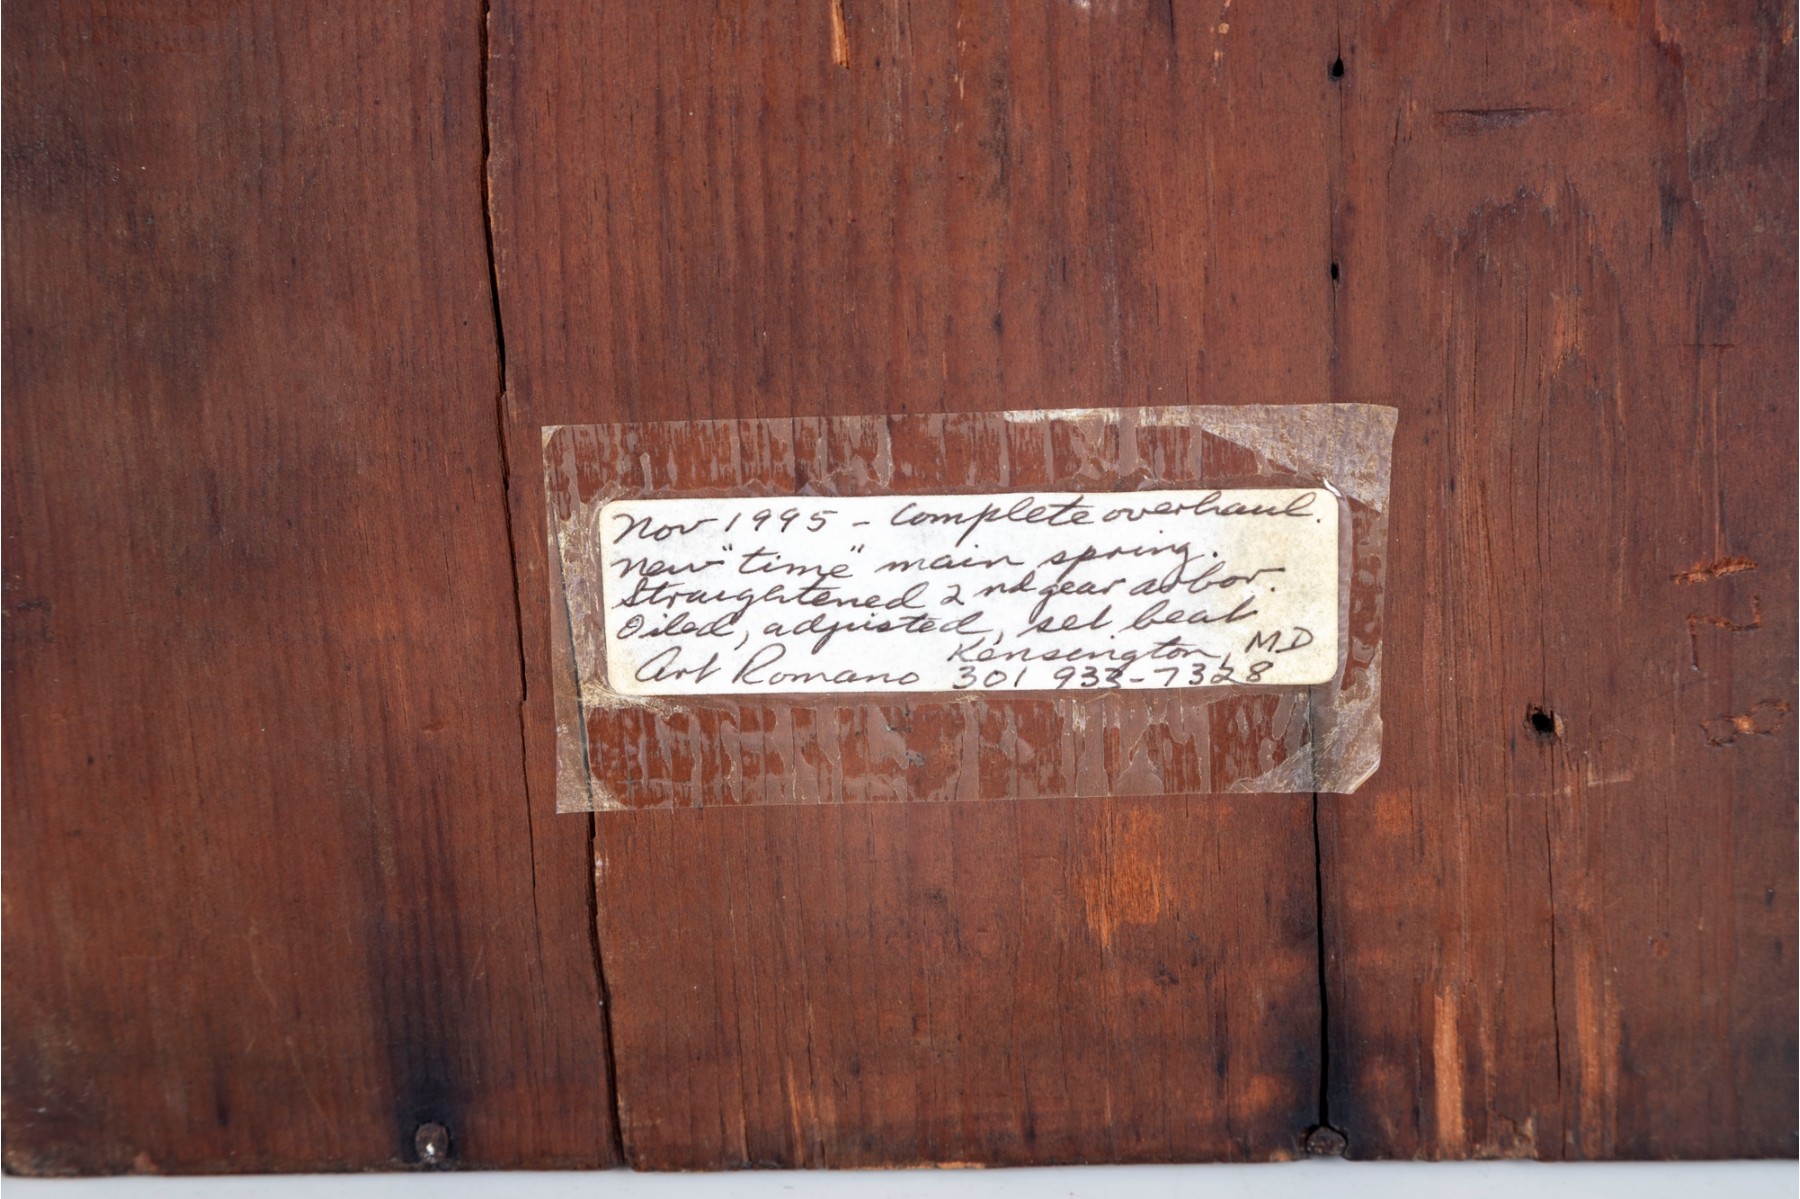 Nov 1995 - Complete overhaul.
New "time" main spring.
Straightened 2nd gear arbor.
Oiled, adjusted, set beat
Kensington, MD
Art Romano 301 933-7328